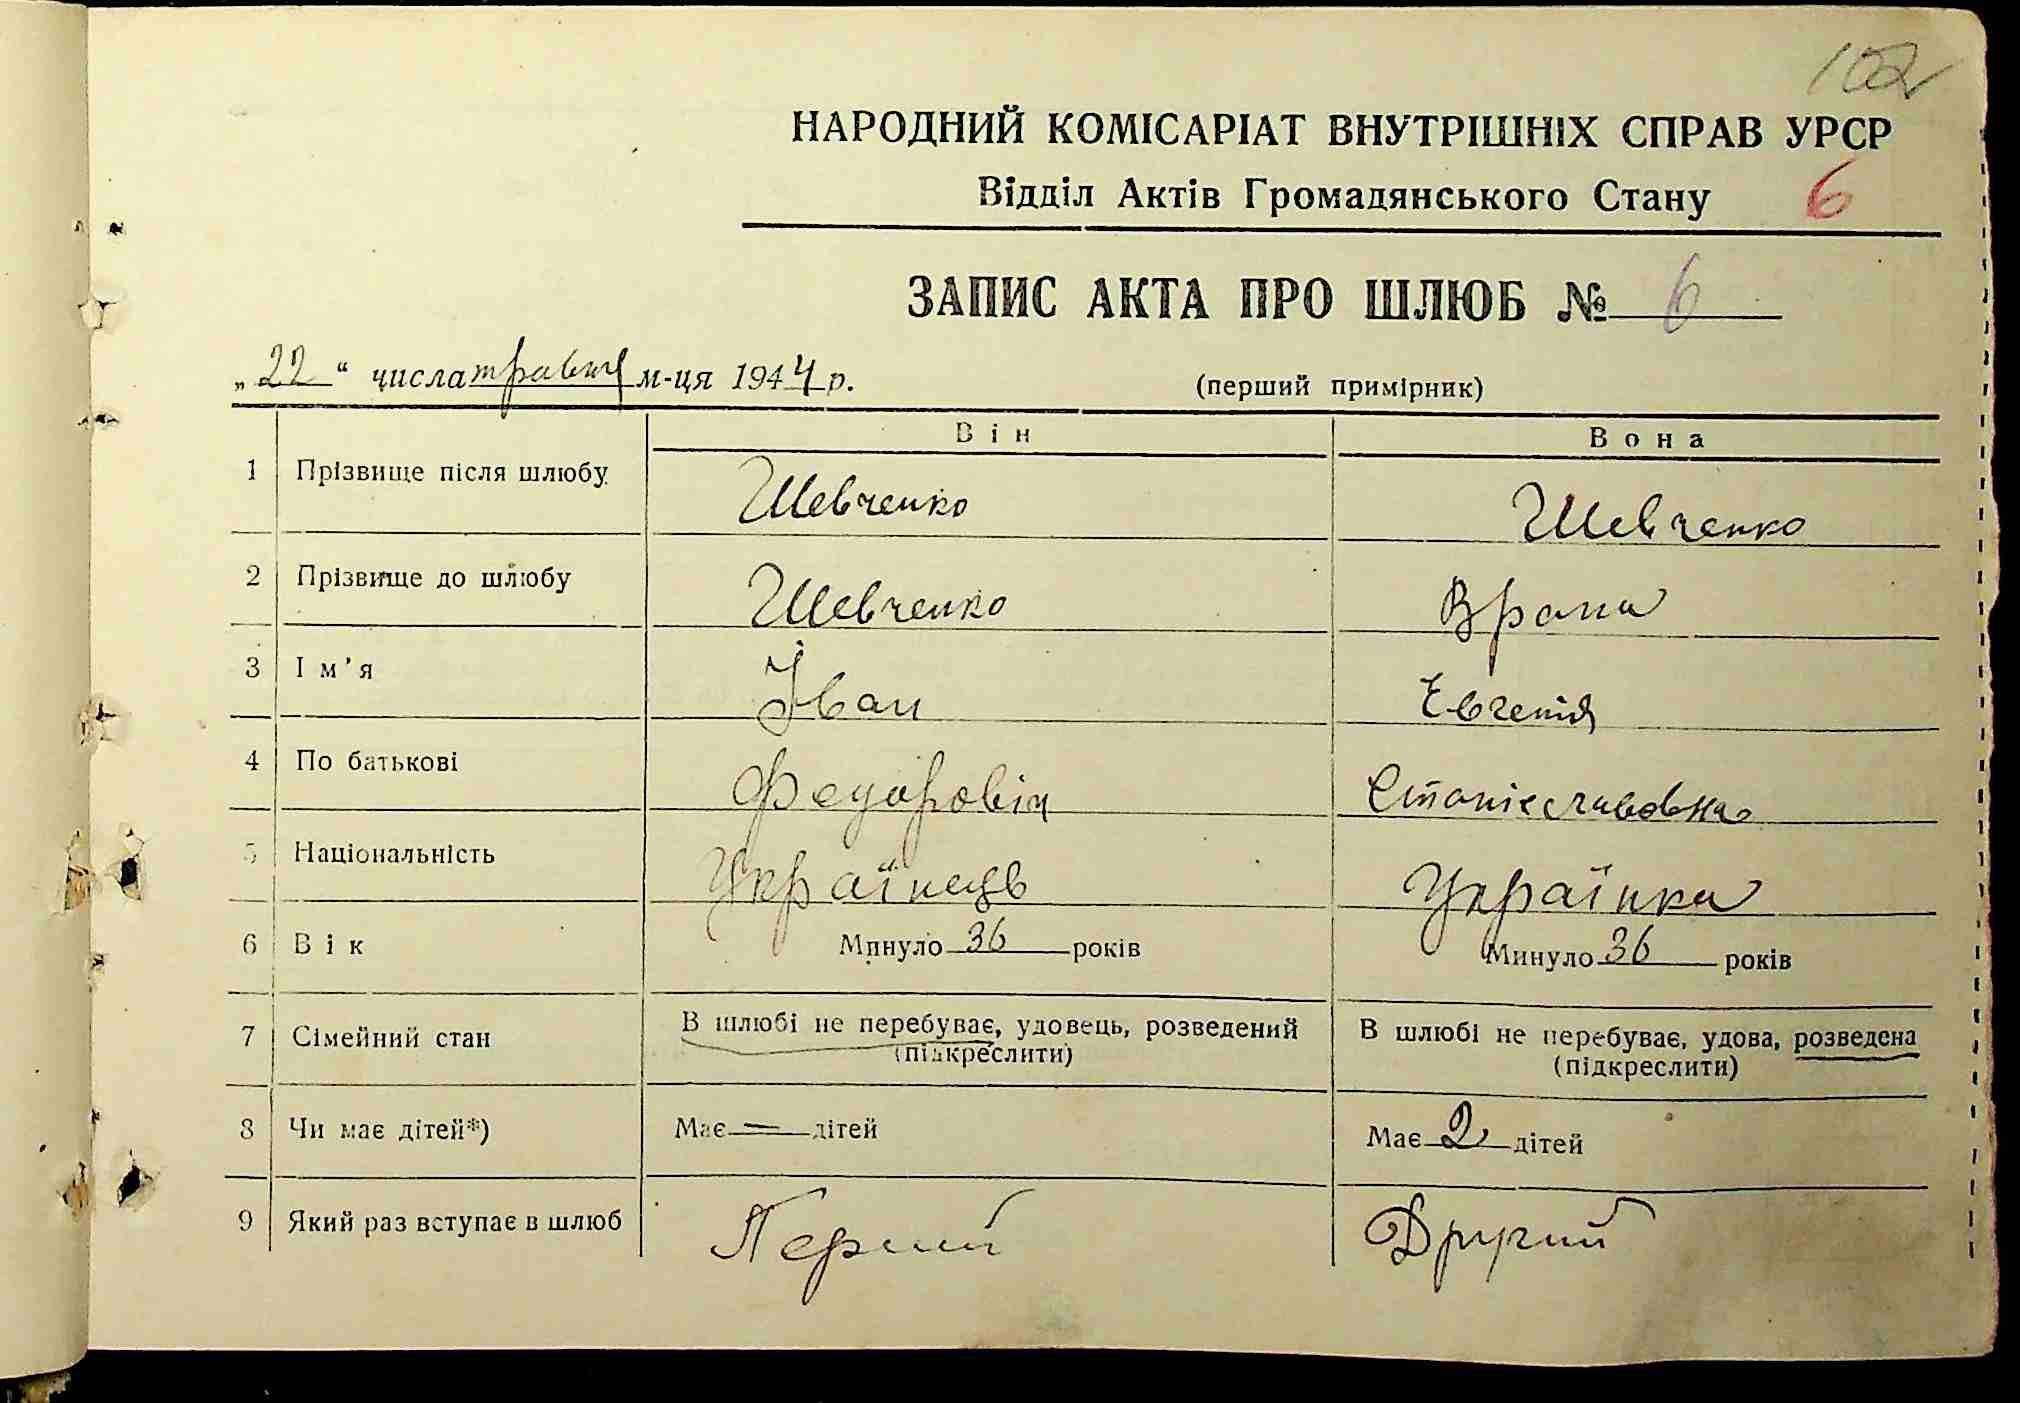 102
НАРОДНИЙ КОМІСАРІАТ ВНУТРІШНІХ СПРАВ УРСР
Відділ Актів Громадянського Стану 6
ЗАПИС АКТА ПРО ШЛЮБ № 6
„22“ числа травня м-ця 1944 р. (перший примірник)
Він Вона
1 Прізвище після шлюбу Шевченко Шевченко
2 Прізвище до шлюбу Шевченко Врана
3 Ім'я Іван Евгенія
4 По батькові Федоровіч Станіславовна
5 Національність Українець Українка
6 Вік Минуло 36 років Минуло 36 років
7 Сімейний стан В шлюбі не перебуває, удовець, розведений В шлюбі не перебуває, удова, розведена
(підкреслити) (підкреслити)
8 Чи має дітей*) Має — дітей Має 2 дітей
9 Який раз вступає в шлюб Перший Другий